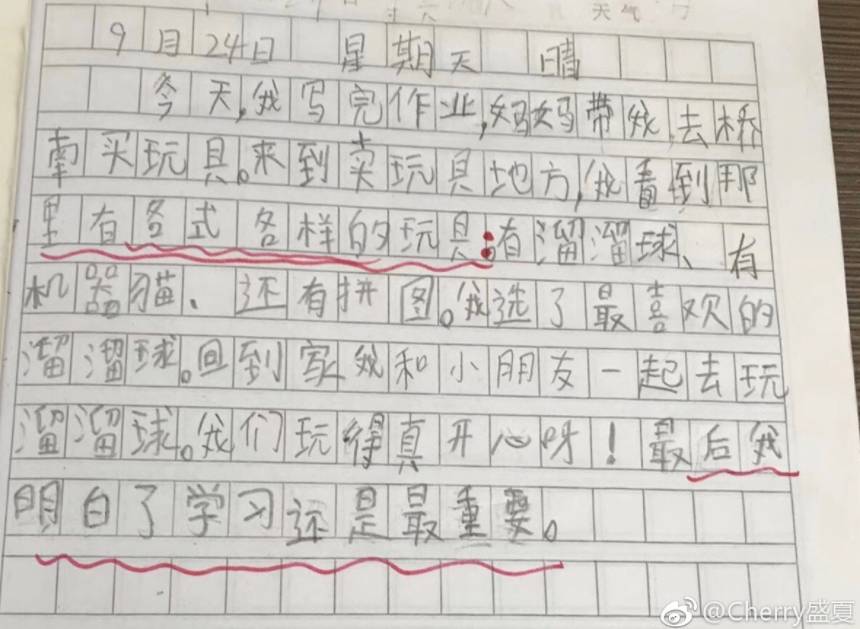 天气
9月24日 星期天 晴
今天,我写完作业,妈妈带我去桥
南买玩具。来到卖玩具地方,我看到那
里有各式各样的玩具:有溜溜球、有
机器猫、还有拼图。我选了最喜欢的
溜溜球。回到家我和小朋友一起去玩
溜溜球。我们玩得真开心呀!最后我
明白了学习还是最重要。
@Cherry盛夏